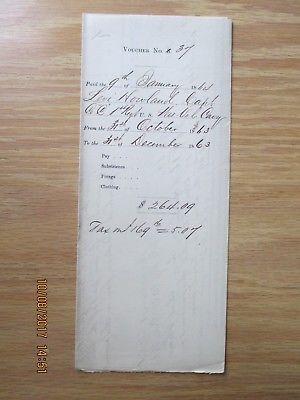 VOUCHER No. 37
Paid the 9th of January 1864
Levi Howland Capt
Co C 1st Regt Wis Vol Cavy
From the 31st of October 1863
To the 31st of December 1863
Pay
Subsistence
Forage
Clothing
$264.09
Tax on $169 = 5.07
10/08/2017 14:51